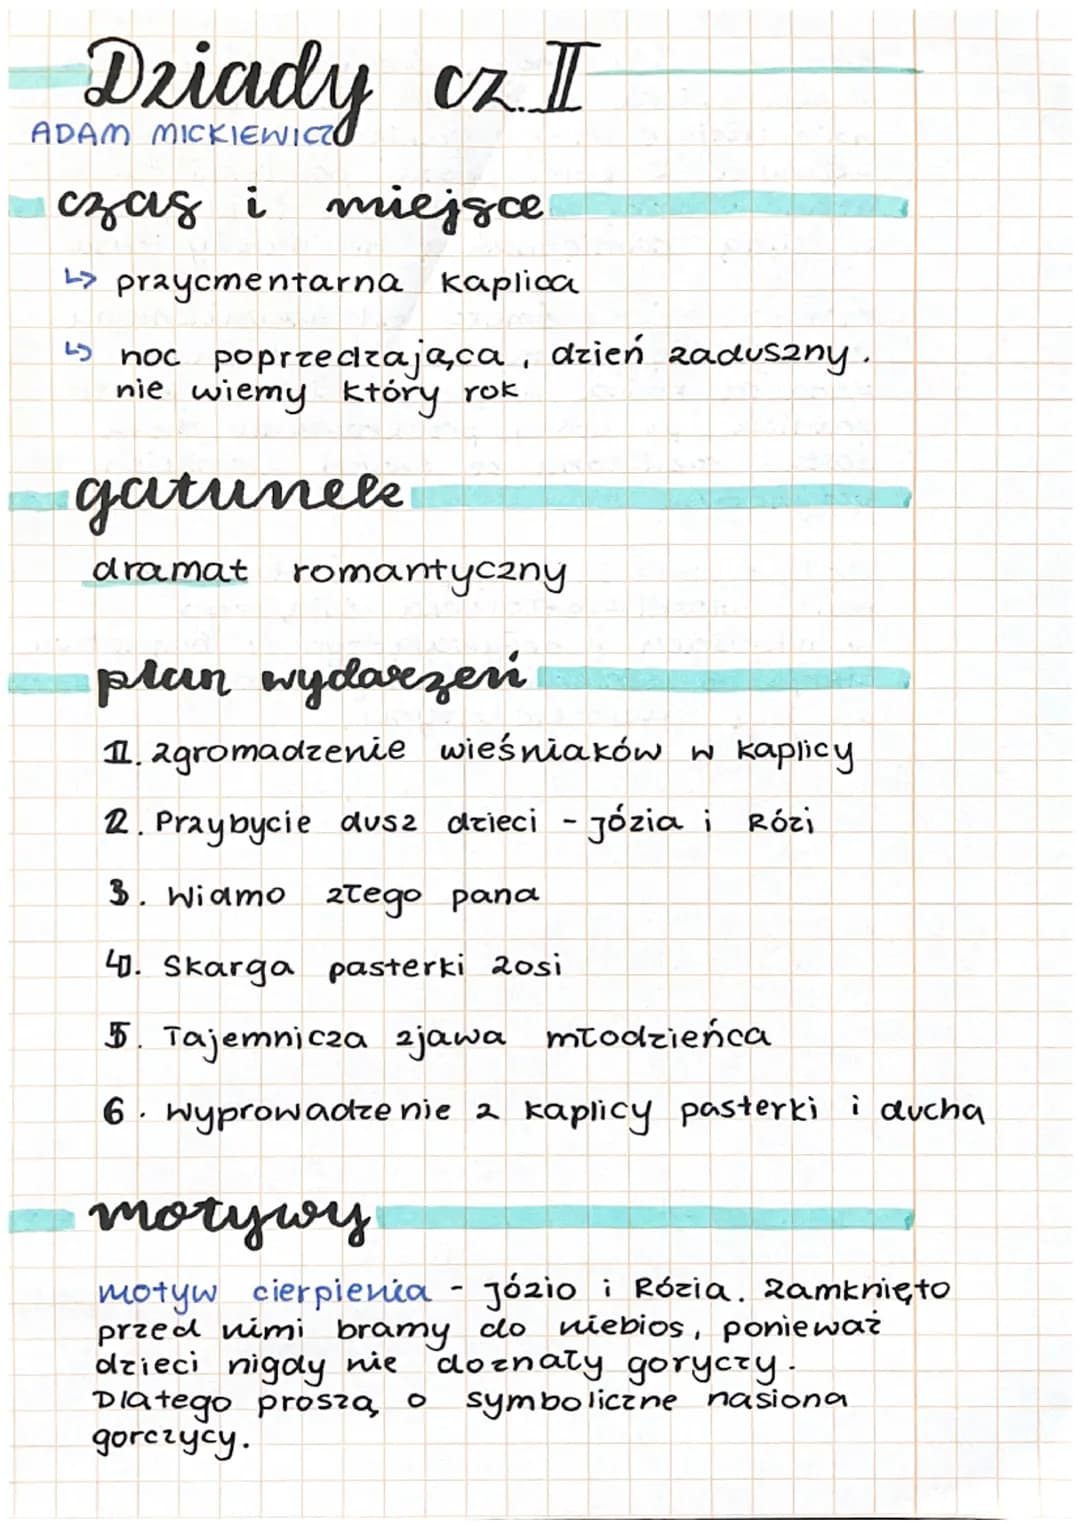 Dziady cz. II
ADAM MICKIEWICZ
czas i miejsce
↳ przycmentarna kaplica
↳ noc poprzedzająca, dzień zaduszny.
nie wiemy który rok
gatunek
dramat romantyczny
plan wydarzeń
1. zgromadzenie wieśniaków w kaplicy
2. Przybycie dusz dzieci - Józia i Rózi
3. Widmo złego pana
4. Skarga pasterki Zosi
5. Tajemnicza zjawa młodzieńca
6. Wyprowadzenie z kaplicy pasterki i ducha
motywy
motyw cierpienia - Józio i Rózia. Zamknięto
przed nimi bramy do niebios, ponieważ
dzieci nigdy nie doznały goryczy.
Dlatego proszą o symboliczne nasiona
gorczycy.